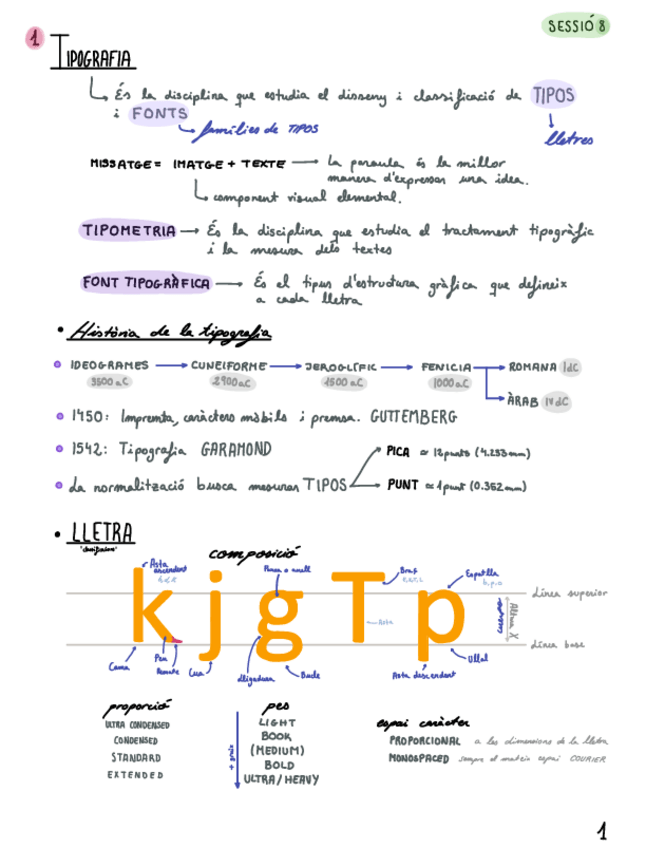 SESSIÓ 8
1 TIPOGRAFIA
És la disciplina que estudia el disseny i classificació de TIPOS
i FONTS
famílies de TIPOS
lletres
MISSATGE = IMATGE + TEXTE → La paraula és la millor
manera d'expressar una idea.
component visual elemental.
TIPOMETRIA → És la disciplina que estudia el tractament tipogràfic
i la mesura dels textes
FONT TIPOGRÀFICA → És el tipus d'estructura gràfica que defineix
a cada lletra
• Història de la tipografia
IDEOGRAMES → CUNEIFORME → JEROGLÍFIC → FENICIA → ROMANA 1dC
3500 a.C 2900 a.C 1500 a.C 1000 a.C
ÀRAB IV dC
1450: Impremta, caràcters mòbils i premsa. GUTTEMBERG
1542: Tipografia GARAMOND
PICA ≈ 12 punts (4.233 mm)
La normalització busca mesurar TIPOS
PUNT ≈ 1 punt (0.352 mm)
• LLETRA
composició
Asta ascendent
b.d.k
Panxa o anell
Braç
Espatlla
línia superior
k j g T p
Asta
Altura X
cuerpo
línia base
Cama
Peu
Remate
Cua
lligadura
Bucle
Asta descendent
Ullal
proporció
ULTRA CONDENSED
CONDENSED
STANDARD
EXTENDED
pes
+ gruix
LIGHT
BOOK
(MEDIUM)
BOLD
ULTRA/HEAVY
espai caràcter
PROPORCIONAL a les dimensions de la lletra
MONOSPACED sempre el mateix espai COURIER
1